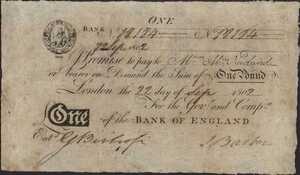 ONE
BANK No 78184 No 78184
22 Sep 1802
I Promise to pay to Mr. Abm. Newland
or bearer on Demand the Sum of One Pound
London the 22 day of Sep 1802
For the Govr. and Compa.
One of the BANK OF ENGLAND
Entd.